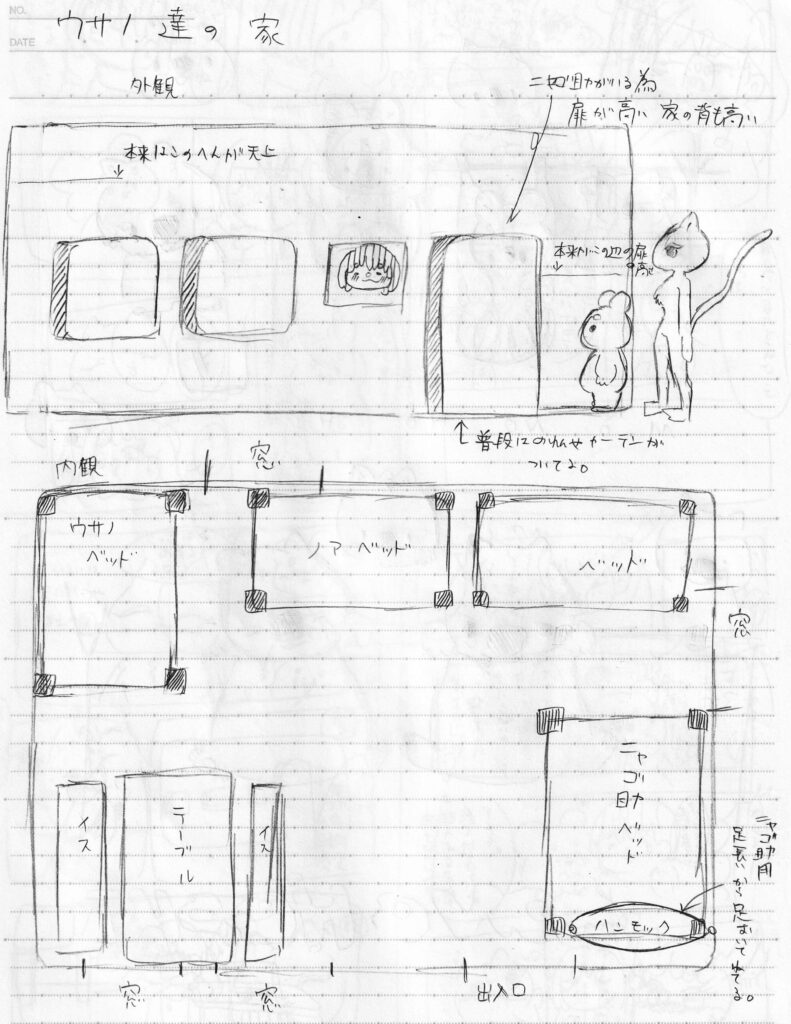 NO.
DATE
ウサノ達の家
外観
ニャゴ助がいる為
扉が高い 家の背も高い
本来はこのへんが天上
本来がこの辺の扉
普段はのれんやカーテンが
ついてる。
内観
窓
ウサノ
ベッド
ノアベッド
ベッド
窓
ニャゴ助ベッド
イス
テーブル
イス
ハンモック
ニャゴ助用
足長いから足おいて
窓
窓
出入口